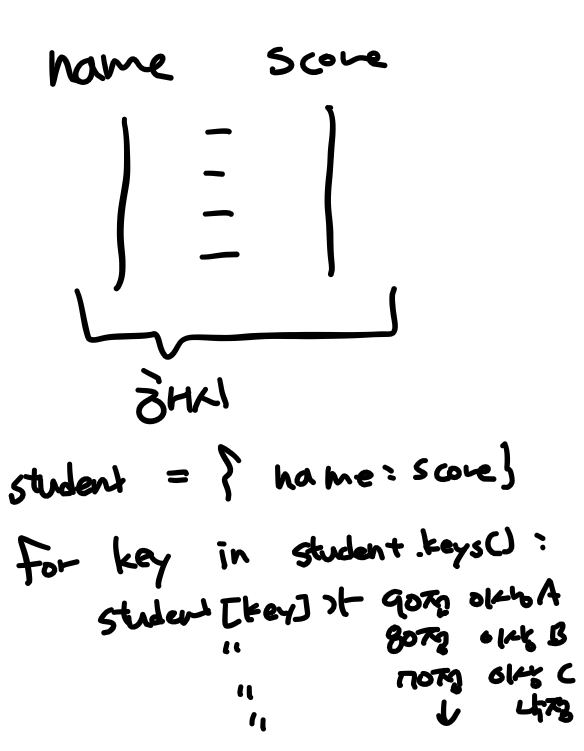 name score
해시
student = { name : score }
for key in student.keys() :
student[key]가 90점 이상 A
" 80점 이상 B
" 70점 이상 C
" ↓ 낙제